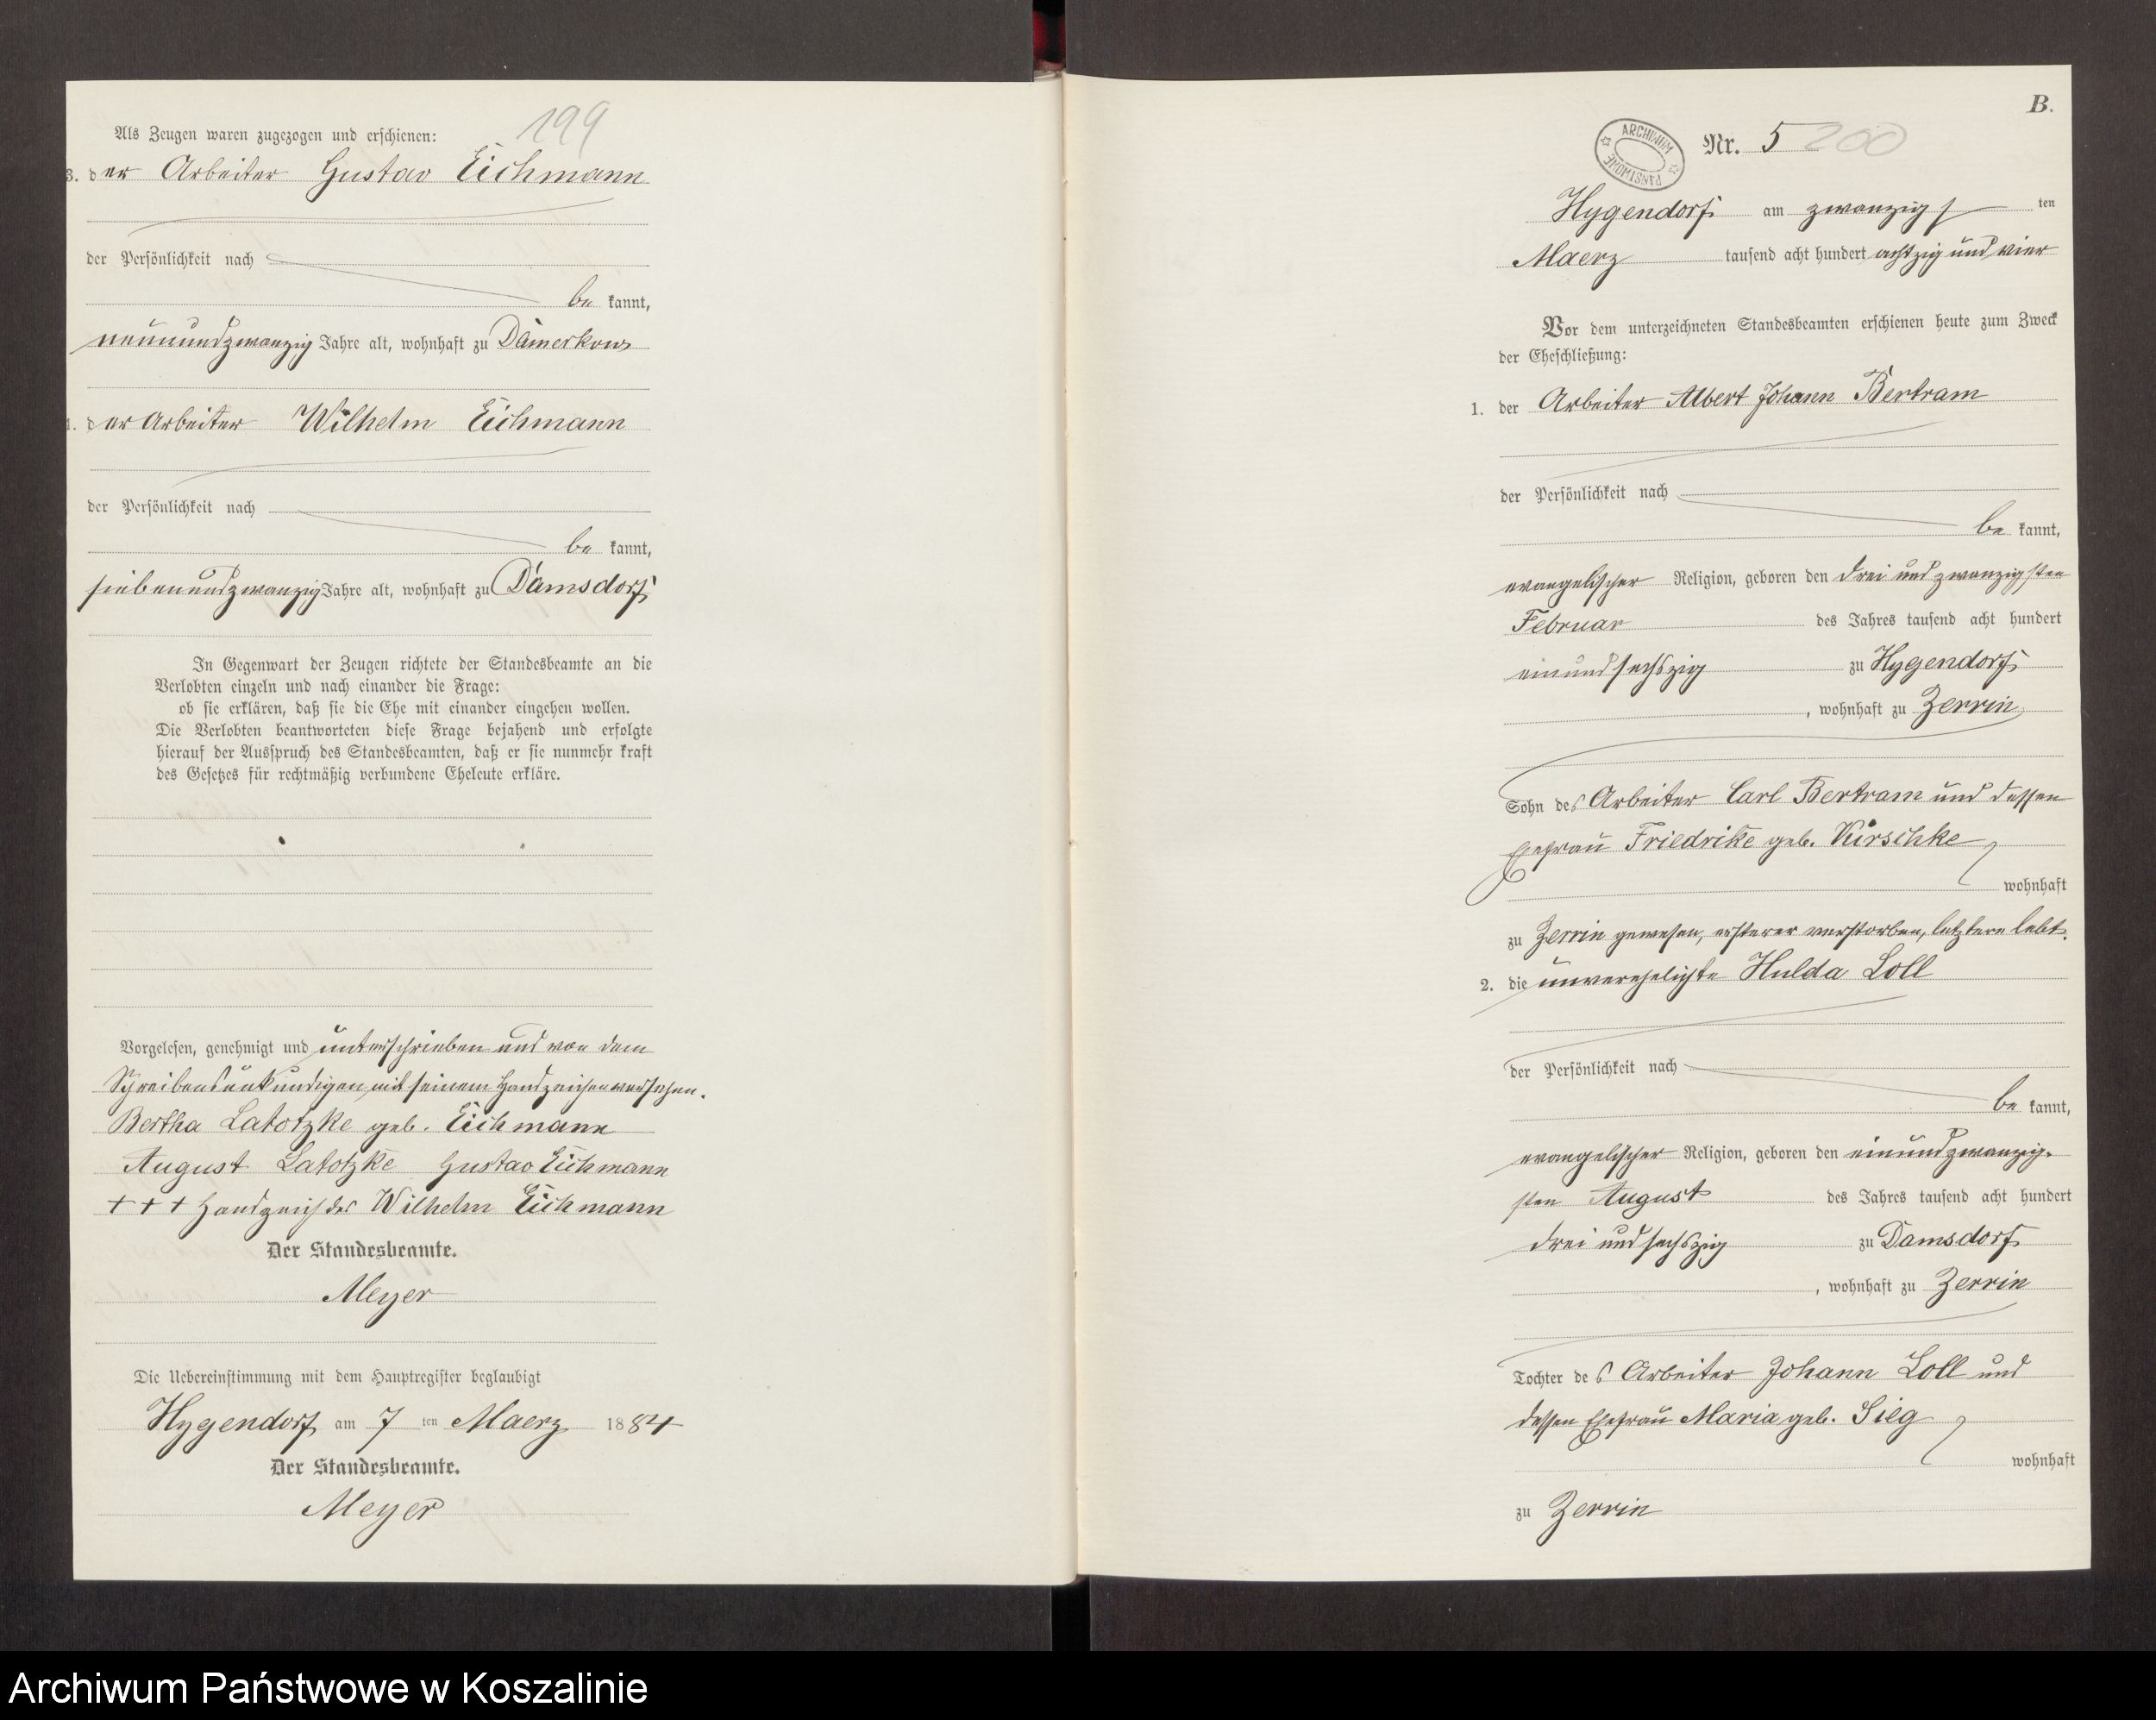 199
Als Zeugen waren zugezogen und erschienen:
3. der Arbeiter Gustav Eichmann
der Persönlichkeit nach
be kannt,
neunundzwanzig Jahre alt, wohnhaft zu Damerkow
4. der Arbeiter Wilhelm Eichmann
der Persönlichkeit nach
be kannt,
siebenundzwanzig Jahre alt, wohnhaft zu Damsdorf
In Gegenwart der Zeugen richtete der Standesbeamte an die
Verlobten einzeln und nach einander die Frage:
ob sie erklären, daß sie die Ehe mit einander eingehen wollen.
Die Verlobten beantworteten diese Frage bejahend und erfolgte
hierauf der Ausspruch des Standesbeamten, daß er sie nunmehr kraft
des Gesetzes für rechtmäßig verbundene Eheleute erkläre.
Vorgelesen, genehmigt und unterschrieben und von dem
Schreibensunkundigen mit seinem Handzeichen versehen.
Bertha Latotzke geb. Eichmann
August Latotzke Gustav Eichmann
+++ Handzeich des Wilhelm Eichmann
Der Standesbeamte.
Meyer
Die Uebereinstimmung mit dem Hauptregister beglaubigt
Hygendorf am 7 ten Maerz 1884
Der Standesbeamte.
Meyer
B.
ARCHIWUM PAŃSTWOWE
Nr. 5 200
Hygendorf am zwanzigs ten
Maerz tausend acht hundert achtzig und vier
Vor dem unterzeichneten Standesbeamten erschienen heute zum Zweck
der Eheschließung:
1. der Arbeiter Albert Johann Bertram
der Persönlichkeit nach
be kannt,
evangelischer Religion, geboren den drei und zwanzigsten
Februar des Jahres tausend acht hundert
einundsechszig zu Hygendorf
, wohnhaft zu Zerrin
Sohn des Arbeiter Carl Bertram und dessen
Ehefrau Friedrike geb. Kirschke
wohnhaft
zu Zerrin gewesen, ersterer verstorben, letztere lebt.
2. die unverehelichte Hulda Loll
der Persönlichkeit nach
be kannt,
evangelischer Religion, geboren den einundzwanzig-
sten August des Jahres tausend acht hundert
drei und sechszig zu Damsdorf
, wohnhaft zu Zerrin
Tochter des Arbeiter Johann Loll und
dessen Ehefrau Maria geb. Sieg
wohnhaft
zu Zerrin
Archiwum Państwowe w Koszalinie